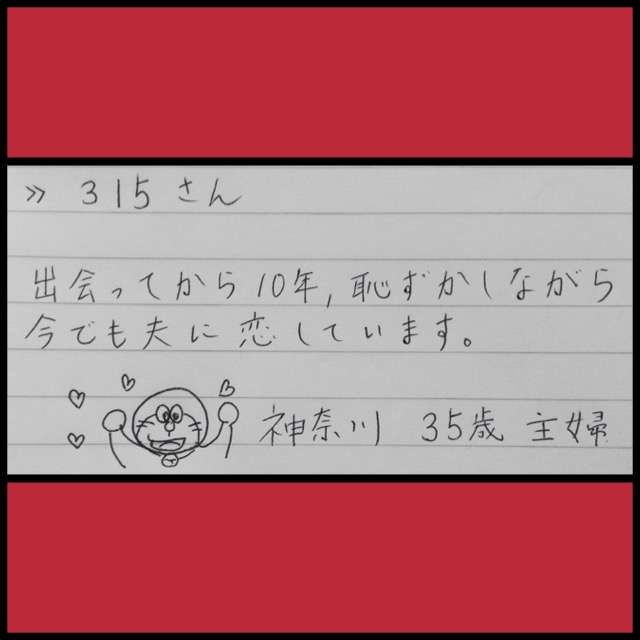 » 315さん
出会ってから10年,恥ずかしながら
今でも夫に恋しています。
神奈川 35歳 主婦